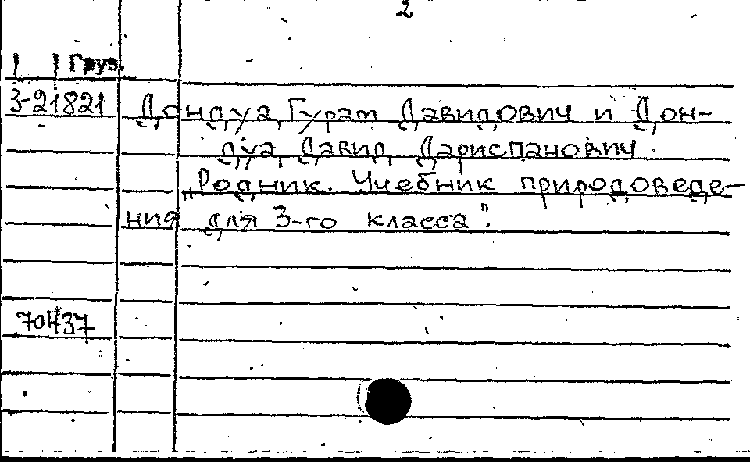 2
Груз.
3-21821 Дондуа, Гурам Давидович и Дон-
дуа, Давид Дариспанович.
„Родник. Учебник природоведе-
ния для 3-го класса".
70437